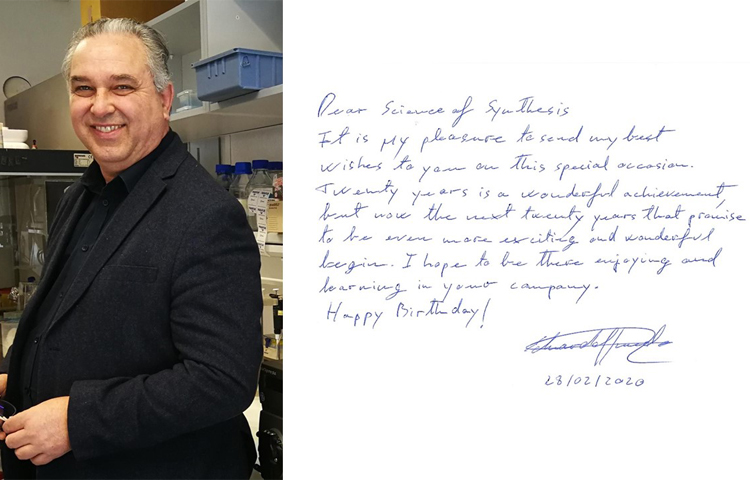 Dear Science of Synthesis
It is my pleasure to send my best
wishes to you on this special occasion.
Twenty years is a wonderful achievement,
but now the next twenty years that promise
to be even more exciting and wonderful
begin. I hope to be there enjoying and
learning in your company.
Happy Birthday!
28/02/2020